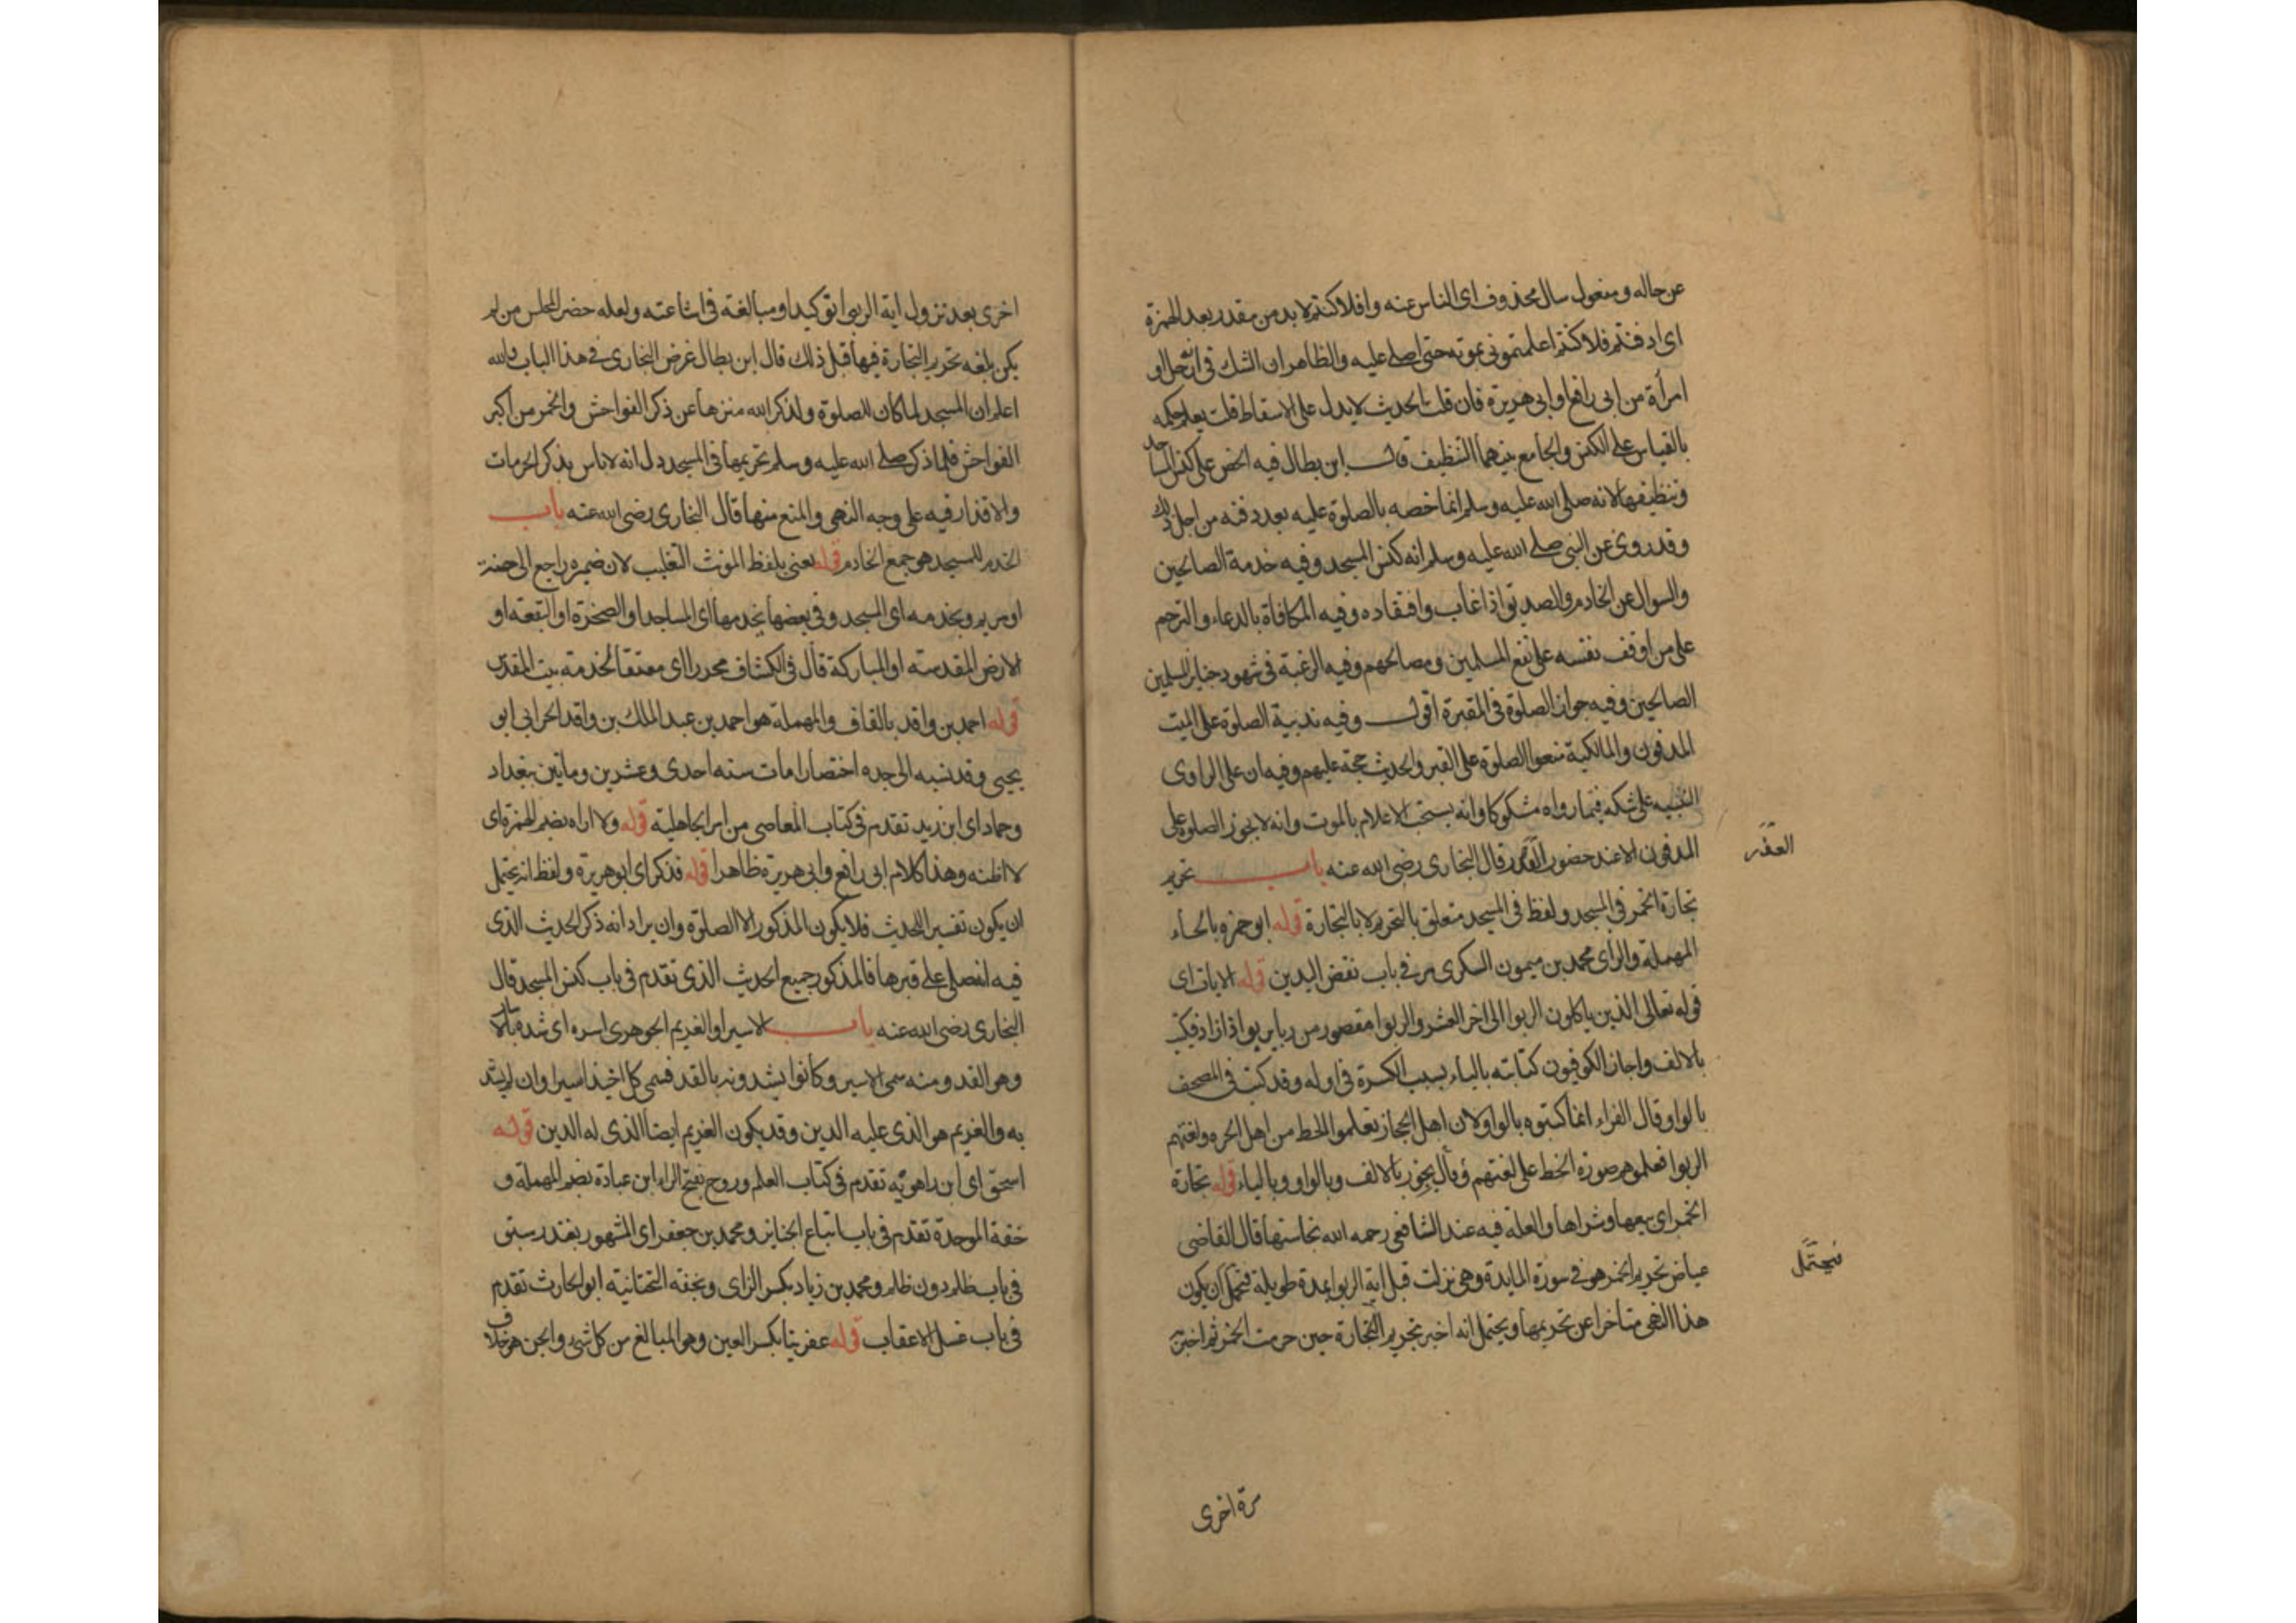 عن حاله ومفعول سال محذوف اى الناس عنه وافلا كنتم لا بد من مقدر بعد الهمزة
اى ادفنتم فلا كنتم اعلمتمونى بموته حتى اصلى عليه والظاهر ان الشك فى انه رجل او
امرأة من ابى رافع او ابى هريرة فان قلت الحديث لا يدل على الاسقاط قلت يعلم حكمه
بالقياس على الكنس والجامع بينهما التنظيف قال ابن بطال فيه الحض على كنس المساجد
وتنظيفها لانه صلى الله عليه وسلم انما خصه بالصلوة عليه بعد دفنه من اجل ذلك
وقد روى عن النبى صلى الله عليه وسلم انه كنس المسجد وفيه خدمة الصالحين
والسوال عن الخادم والصديق اذا غاب وافتقاده وفيه المكافاة بالدعاء والترحم
على من اوقف نفسه على نفع المسلمين ومصالحهم وفيه الرغبة فى شهود جنايز المسلمين
الصالحين وفيه جواز الصلوة فى المقبرة اقول وفيه ندبية الصلوة على الميت
المدفون والمالكية منعوا الصلوة على القبر والحديث حجة عليهم وفيه ان على الراوى
التنبيه على شكه فيما رواه مشكوكا وانه يستحب الاعلام بالموت وانه لا يجوز الصلوة على
المدفون الا عند حضور القبر قال البخارى رضى الله عنه باب تحريم
القبر
تجارة الخمر فى المسجد ولفظ فى المسجد متعلق بالتحريم لا بالتجارة قوله ابو حمزه بالحاء
المهملة والزاى محمد بن ميمون السكرى مر فى باب نفض اليدين قوله الايات اى
قوله تعالى الذين ياكلون الربوا الى اخر العشر والربوا مقصور من ربا يربوا اذا زاد فيكتب
بالالف واجاز الكوفيون كتابته بالياء بسبب الكسرة فى اوله وقد كتب فى المصحف
بالواو وقال الفراء انما كتبوه بالواو لان اهل الحجاز تعلموا الخط من اهل الحيره ولغتهم
الربوا فعلموهم صورة الخط على لغتهم وقال يجوز بالالف وبالواو وبالياء قوله تجارة
الخمر اى بيعها وشراها والعلة فيه عند الشافعى رحمه الله نجاستها قال القاضى
عياض تحريم الخمر هو فى سورة المايدة وهى نزلت قبل اية الربوا بمدة طويلة فيحتمل ان يكون
فيحتمل
هذا النهى متاخرا عن تحريمها ويحتمل انه اخبر بتحريم التجارة حين حرمت الخمر ثم اخبر
مرة اخرى
اخرى بعد نزول اية الربوا توكيدا ومبالغة فى اشاعته ولعله حضر المجلس من لم
يكن بلغه تحريم التجارة فيها قبل ذلك قال ابن بطال غرض البخارى فى هذا الباب والله
اعلم ان المسجد لما كان للصلوة ولذكر الله منزها عن ذكر الفواحش والخمر من اكبر
الفواحش فلما ذكر صلى الله عليه وسلم تحريمها فى المسجد دل انه لا باس بذكر المحرمات
والاقذار فيه على وجه النهى والمنع منها قال البخارى رضى الله عنه باب
الخدم للمسجد هو جمع الخادم قوله يعنى بلفظ المونث التغليب لان ضميره راجع الى حنة
او مريم ويخدمه اى المسجد وفى بعضها يخدمها اى المساجد او الصخرة او البقعة او
الارض المقدسة او المباركة قال فى الكشاف محررا اى معتقا لخدمة بيت المقدس
قوله احمد بن واقد بالقاف والمهملة هو احمد بن عبد الملك بن واقد الحرانى ابو
يحيى وقد نسبه الى جده اختصارا مات سنه احدى وعشرين وماتين ببغداد
وحماد اى ابن زيد تقدم فى كتاب المعاصى من امر الجاهلية قوله ولا اراه بضم الهمزة اى
لا اظنه وهذا كلام ابى رافع وابى هريرة ظاهرا قوله فذكر اى ابو هريرة ولفظ انه يحتمل
ان يكون تفسير الحديث فلا يكون المذكور الا الصلوة وان يراد انه ذكر الحديث الذى
فيه انه صلى على قبرها فالمذكور جميع الحديث الذى تقدم فى باب كنس المسجد قال
البخارى رضى الله عنه باب الاسير او الغريم الجوهرى اسره اى شده بالاسار
وهو القد ومنه سمى الاسير وكانوا يشدونه بالقد فسمى كل اخيذ اسيرا وان لم يشد
به والغريم هو الذى عليه الدين وقد يكون الغريم ايضا الذى له الدين قوله
اسحق اى ابن راهويه تقدم فى كتاب العلم وروح بفتح الراء ابن عبادة بضم المهملة و
خفة الموحدة تقدم فى باب اتباع الجنايز ومحمد بن جعفر اى المشهور بغندر سبق
فى باب ظلم دون ظلم ومحمد بن زياد بكسر الزاى وبخفة التحتانية ابو الحارث تقدم
فى باب غسل الاعقاب قوله عفريتا بكسر العين وهو المبالغ من كل شىء والجن هو خلاف